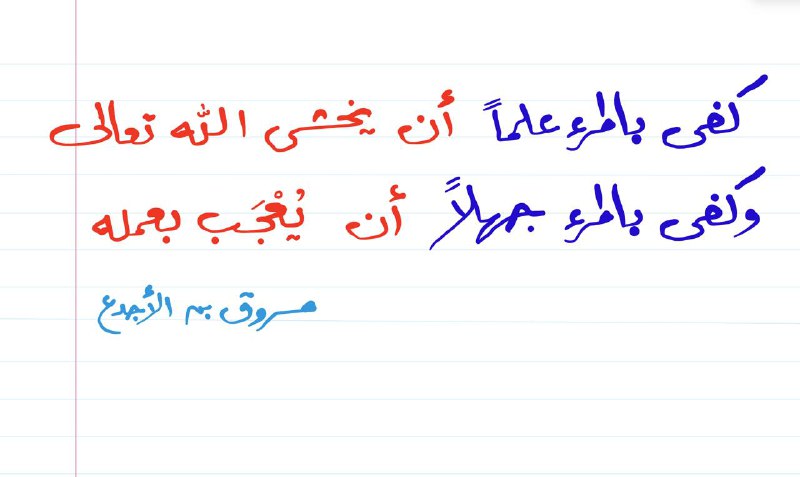 كفى بالمرء علماً أن يخشى الله تعالى
وكفى بالمرء جهلاً أن يُعْجَب بعمله
مسروق بن الأجدع